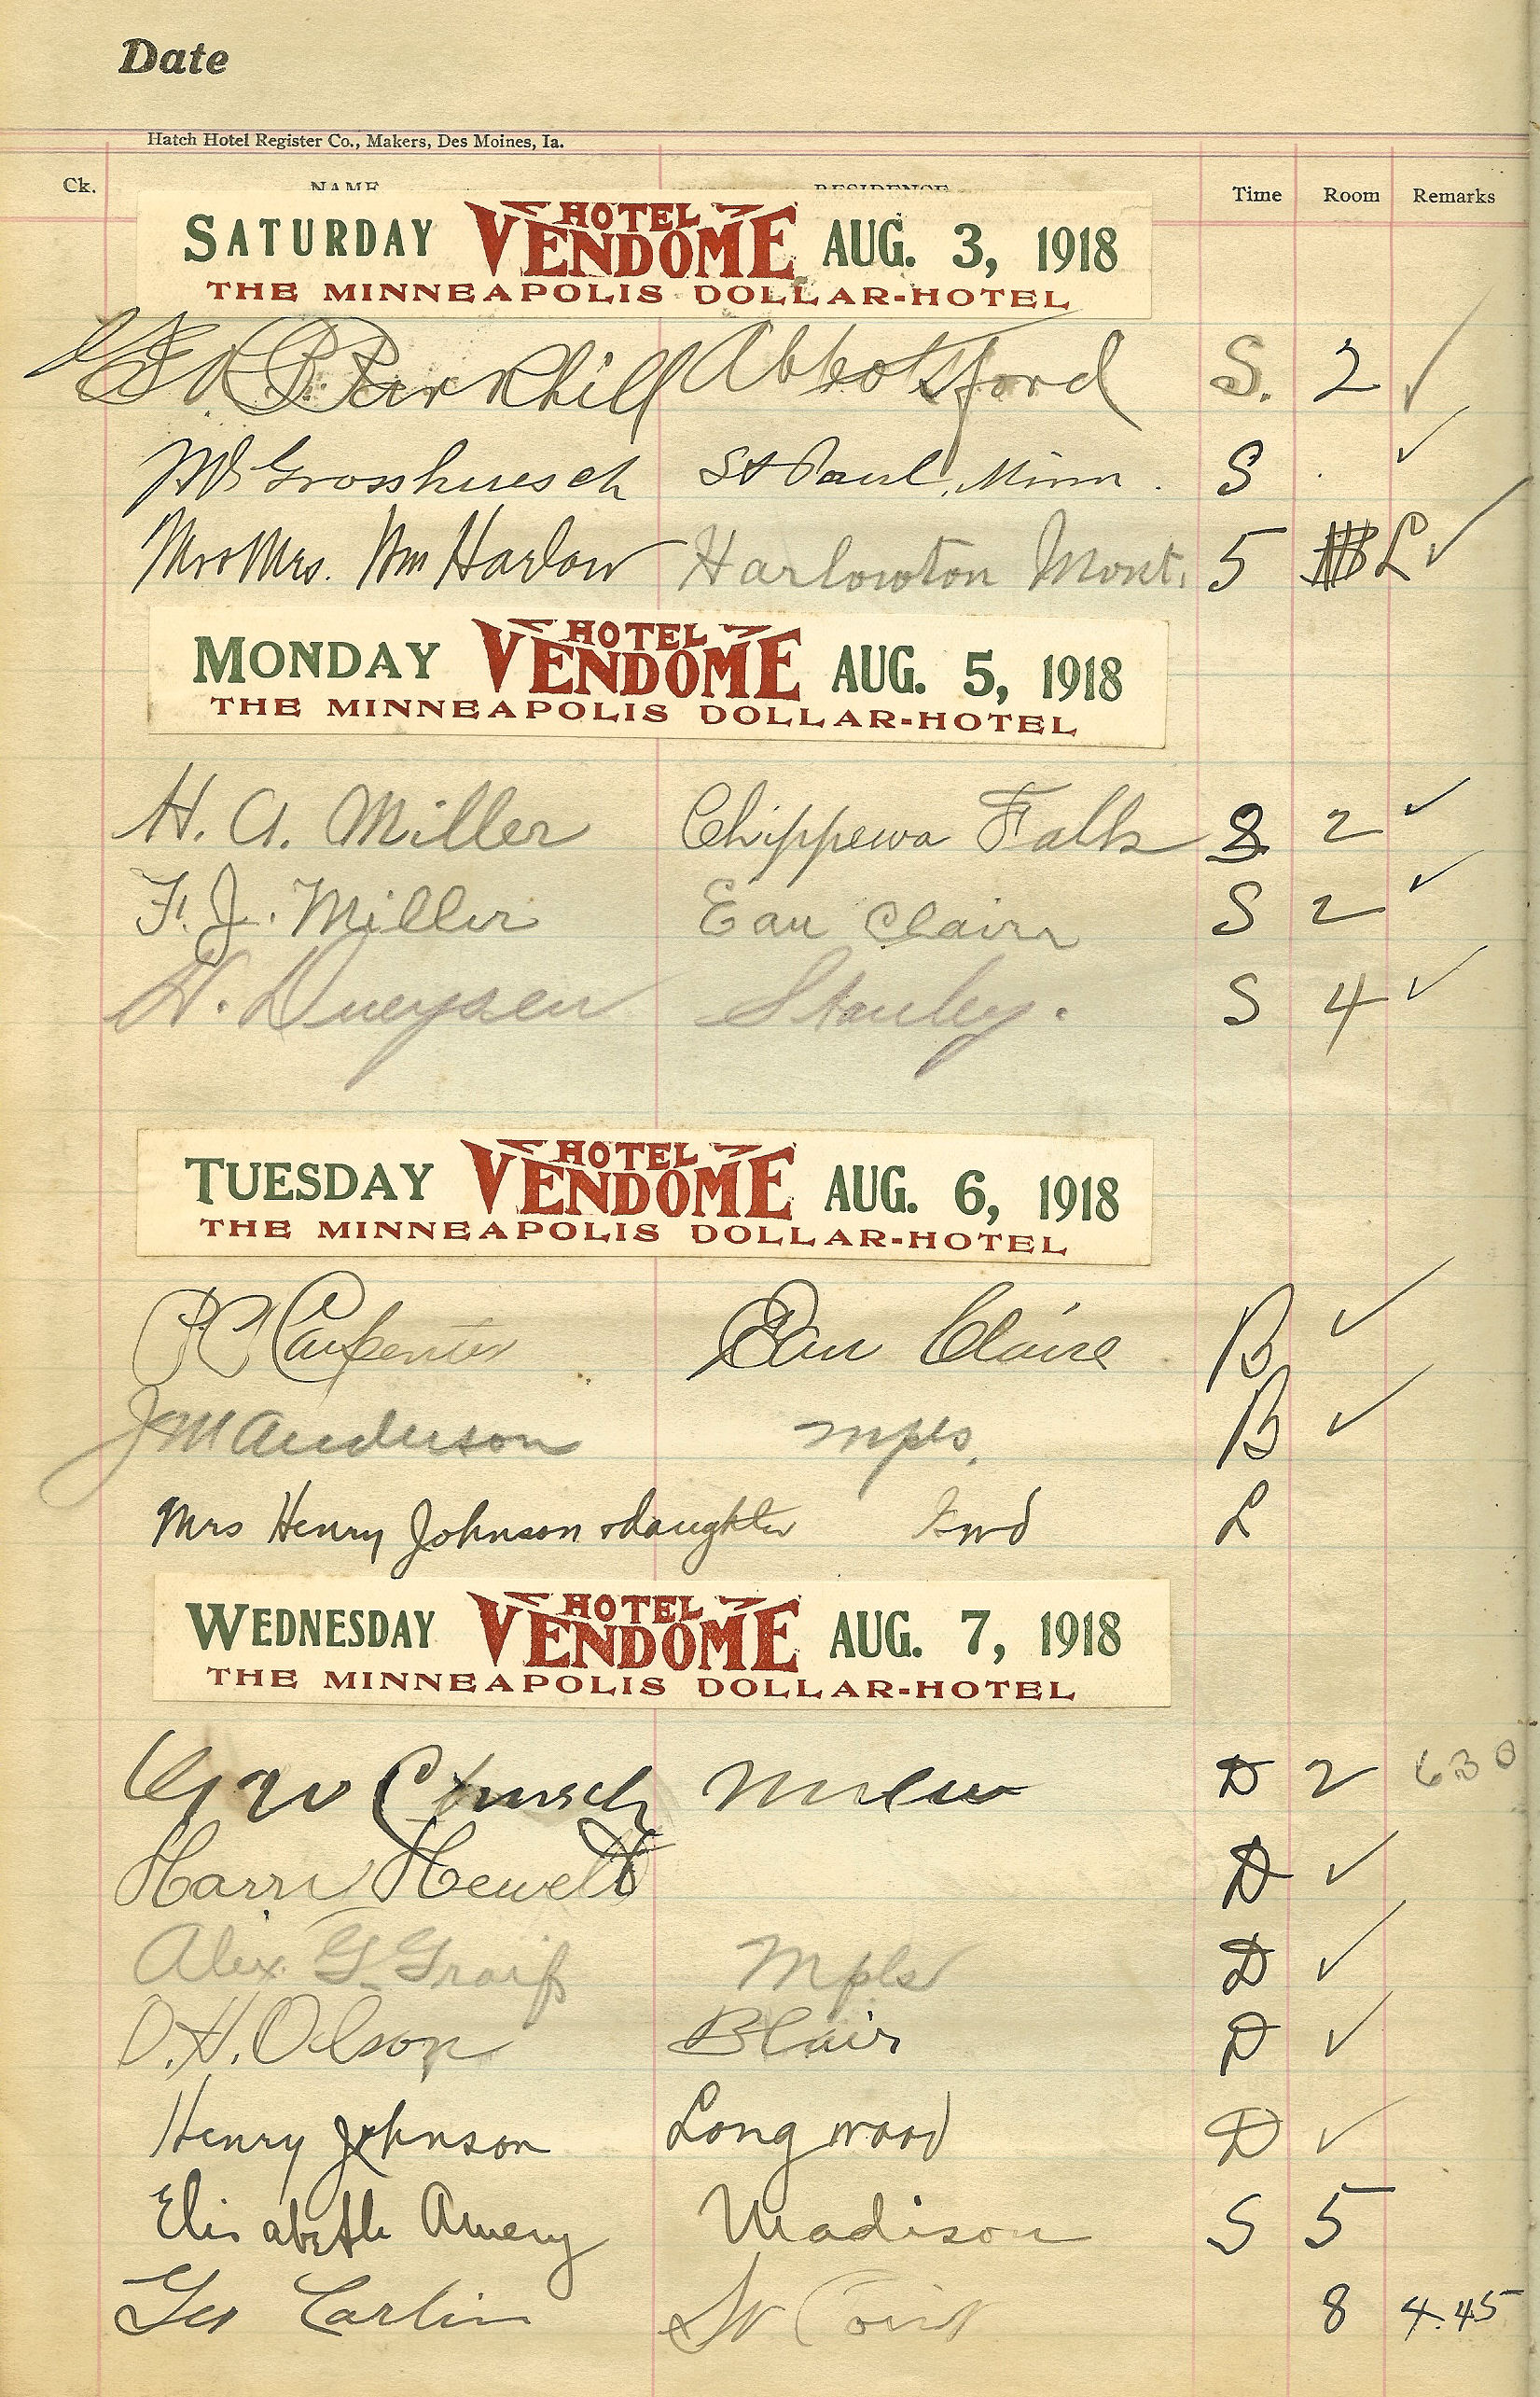 Date
Hatch Hotel Register Co., Makers, Des Moines, Ia.
Ck. NAME RESIDENCE Time Room Remarks
SATURDAY HOTEL VENDOME AUG. 3, 1918
THE MINNEAPOLIS DOLLAR-HOTEL
Abbotsford S. 2 ✓
Grosshuesch St Paul, Minn. S ✓
Mr & Mrs. Wm Harlow Harlowton Mont. 5 L ✓
MONDAY HOTEL VENDOME AUG. 5, 1918
THE MINNEAPOLIS DOLLAR-HOTEL
H. A. Miller Chippewa Falls S 2 ✓
F. J. Miller Eau Claire S 2 ✓
H. Dueysen Stanley. S 4 ✓
TUESDAY HOTEL VENDOME AUG. 6, 1918
THE MINNEAPOLIS DOLLAR-HOTEL
Carpenter Eau Claire B ✓
J M Anderson Mpls. B ✓
Mrs Henry Johnson & daughter L
WEDNESDAY HOTEL VENDOME AUG. 7, 1918
THE MINNEAPOLIS DOLLAR-HOTEL
Church D 2 630
Harry Hewett D ✓
Alex. G. Graif Mpls D ✓
O. H. Olson Blair D ✓
Henry Johnson Longwood D ✓
Elisabeth Amery Madison S 5
Geo Carlin 8 4.45